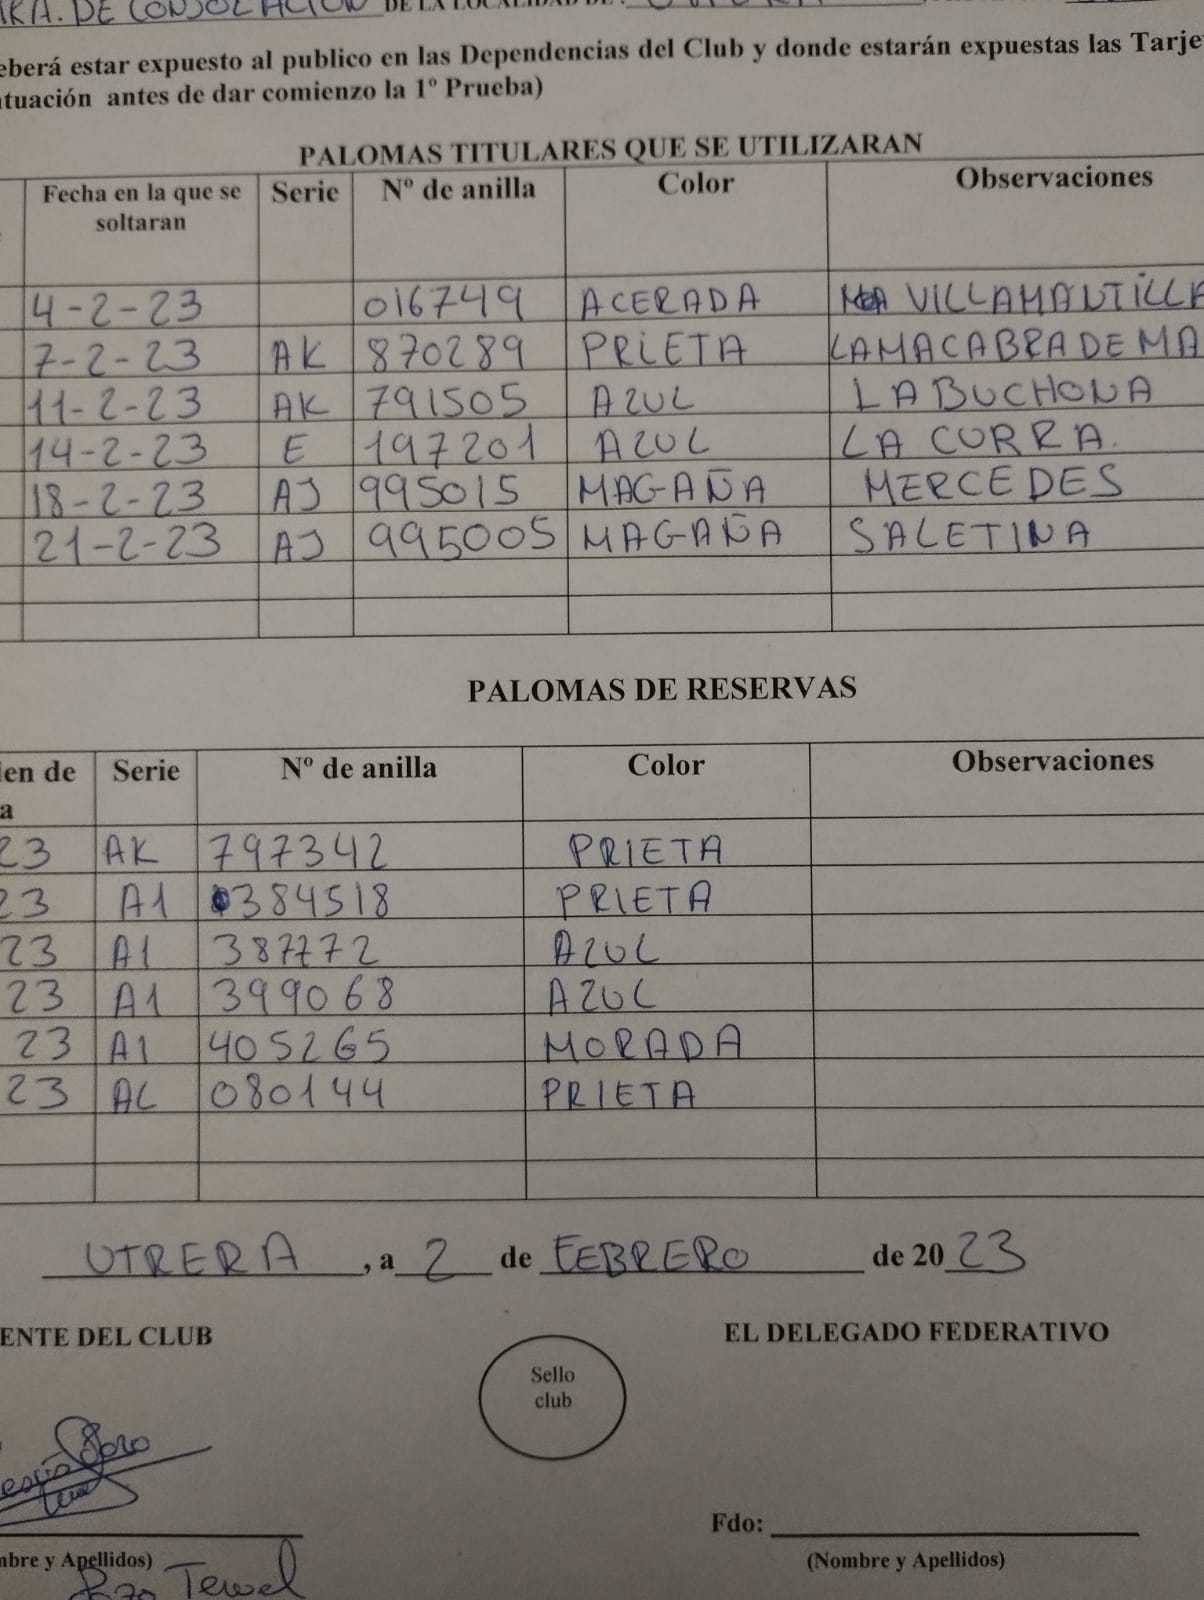 RA. DE CONSOLACION DE LA LOCALIDAD DE:
eberá estar expuesto al publico en las Dependencias del Club y donde estarán expuestas las Tarje
tuación antes de dar comienzo la 1º Prueba)
PALOMAS TITULARES QUE SE UTILIZARAN
Fecha en la que se soltaran Serie Nº de anilla Color Observaciones
4-2-23 016749 ACERADA VILLAMANTILLA
7-2-23 AK 870289 PRIETA LA MACABRA DE MA
11-2-23 AK 791505 AZUL LA BUCHONA
14-2-23 E 197201 AZUL LA CURRA.
18-2-23 AJ 995015 MAGAÑA MERCEDES
21-2-23 AJ 995005 MAGAÑA SALETINA
PALOMAS DE RESERVAS
en de a Serie Nº de anilla Color Observaciones
23 AK 797342 PRIETA
23 A1 384518 PRIETA
23 A1 387772 AZUL
23 A1 399068 AZUL
23 A1 405265 MORADA
23 AL 080144 PRIETA
UTRERA, a 2 de FEBRERO de 2023
ENTE DEL CLUB EL DELEGADO FEDERATIVO
Sello
club
Fdo:
mbre y Apellidos) (Nombre y Apellidos)